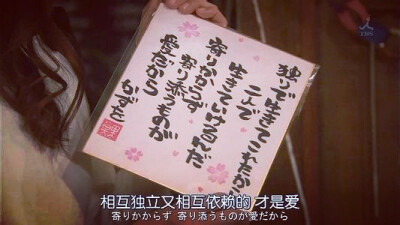 独りで生きてこれたから
二人で
生きていけるんだ
寄りかからず
寄り添うものが
愛だから
かずを
相互独立又相互依赖的 才是爱
寄りかからず 寄り添うものが愛だから